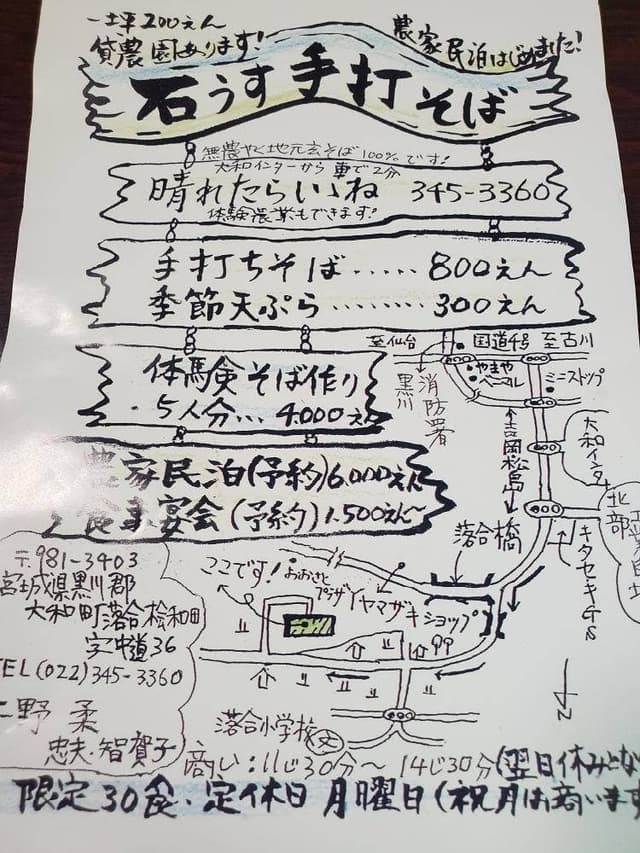 一坪200えん
貸農園あります!
農家民泊はじめました!
石うす手打そば
無農やく地元玄そば100%です!
大和インターから車で2分
晴れたらいいね 345-3360
体験農業もできます!
手打ちそば……800えん
季節天ぷら………300えん
体験そば作り
・5人分…4000えん
農家民泊(予約)6,000えん
食事宴会(予約)1,500えん〜
至仙台
国道4号
至古川
やまや
ベニマル
ミニストップ
黒川消防署
吉岡松島
大和インター
北部
キタセキGS
落合橋
ここです!
おおさと
プラザ
ヤマザキショップ
落合小学校
文
N
〒981-3403
宮城県黒川郡
大和町落合桧和田
字中道36
TEL(022)345-3360
野 柔
忠夫・智賀子
商い:11じ30分〜14じ30分(翌日休みとな
限定30食・定休日 月曜日(祝月は商います